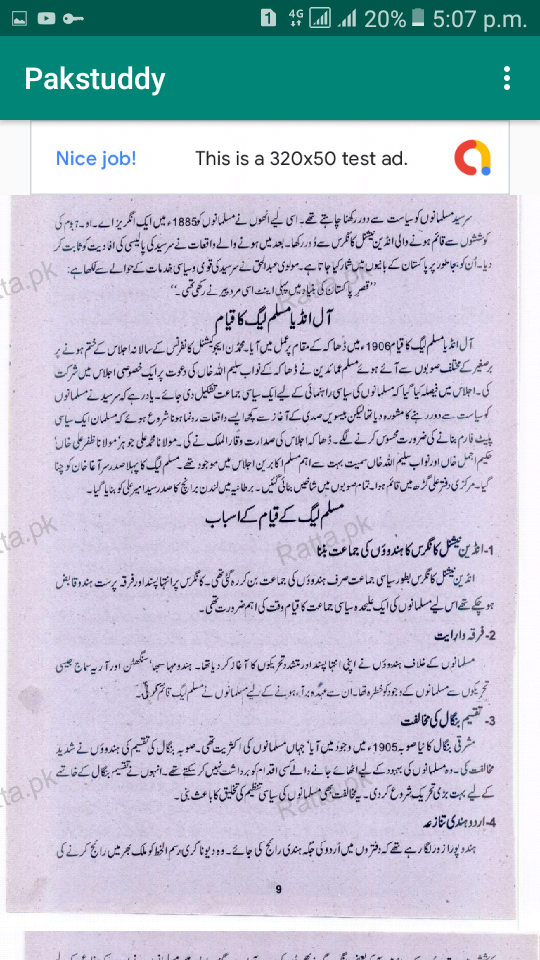 1 4G 20% 5:07 p.m.
Pakstuddy
Nice job! This is a 320x50 test ad.
سرسید مسلمانوں کو سیاست سے دور رکھنا چاہتے تھے۔ اسی لیے انھوں نے مسلمانوں کو 1885ء میں ایک انگریز اے۔ او۔ ہیوم کی
کوششوں سے قائم ہونے والی انڈین نیشنل کانگرس سے دُور رکھا۔ بعد میں ہونے والے واقعات نے سرسید کی پالیسی کی افادیت کو ثابت کر
دیا۔ اُن کو بجا طور پر پاکستان کے بانیوں میں شمار کیا جاتا ہے۔ مولوی عبدالحق نے سرسید کی قومی و سیاسی خدمات کے حوالے سے لکھا ہے:
’’قصرِ پاکستان کی بنیاد میں پہلی اینٹ اسی مردِ پیر نے رکھی تھی۔‘‘
آل انڈیا مسلم لیگ کا قیام
آل انڈیا مسلم لیگ کا قیام 1906ء میں ڈھاکہ کے مقام پر عمل میں آیا۔ محمڈن ایجوکیشنل کانفرنس کے سالانہ اجلاس کے ختم ہونے پر
برصغیر کے مختلف صوبوں سے آئے ہوئے مسلم عمائدین نے ڈھاکہ کے نواب سلیم اللہ خاں کی دعوت پر ایک خصوصی اجلاس میں شرکت
کی۔ اجلاس میں فیصلہ کیا گیا کہ مسلمانوں کی سیاسی راہنمائی کے لیے ایک سیاسی جماعت تشکیل دی جائے۔ یاد رہے کہ سرسید نے مسلمانوں
کو سیاست سے دور رہنے کا مشورہ دیا تھا لیکن بیسویں صدی کے آغاز سے کچھ ایسے واقعات رونما ہونا شروع ہوئے کہ مسلمان ایک سیاسی
پلیٹ فارم بنانے کی ضرورت محسوس کرنے لگے۔ ڈھاکہ اجلاس کی صدارت وقار الملک نے کی۔ مولانا محمد علی جوہر‘ مولانا ظفر علی خاں‘
حکیم اجمل خاں اور نواب سلیم اللہ خاں سمیت بہت سے اہم مسلم اکابرین اجلاس میں موجود تھے۔ مسلم لیگ کا پہلا صدر سر آغا خان کو چنا
گیا۔ مرکزی دفتر علی گڑھ میں قائم ہوا۔ تمام صوبوں میں شاخیں بنائی گئیں۔ برطانیہ میں لندن برانچ کا صدر سید امیر علی کو بنایا گیا۔
مسلم لیگ کے قیام کے اسباب
1- انڈین نیشنل کانگرس کا ہندوؤں کی جماعت بننا
انڈین نیشنل کانگرس بطور سیاسی جماعت صرف ہندوؤں کی جماعت بن کر رہ گئی تھی۔ کانگرس پر انتہا پسند اور فرقہ پرست ہندو قابض
ہو چکے تھے اس لیے مسلمانوں کی ایک علیحدہ سیاسی جماعت کا قیام وقت کی اہم ضرورت تھی۔
2- فرقہ واریت
مسلمانوں کے خلاف ہندوؤں نے اپنی انتہا پسند اور متشدد تحریکوں کا آغاز کر دیا تھا۔ ہندو مہا سبھا‘ سنگھٹن اور آریہ سماج جیسی
تحریکوں سے مسلمانوں کے وجود کو خطرہ تھا۔ ان سے عہدہ برآء ہونے کے لیے مسلمانوں نے مسلم لیگ قائم کر لی۔
3- تقسیم بنگال کی مخالفت
مشرقی بنگال کا نیا صوبہ 1905ء میں وجود میں آیا‘ جہاں مسلمانوں کی اکثریت تھی۔ صوبہ بنگال کی تقسیم کی ہندوؤں نے شدید
مخالفت کی۔ وہ مسلمانوں کی بہبود کے لیے اٹھائے جانے والے کسی اقدام کو برداشت نہیں کر سکتے تھے۔ انہوں نے تقسیم بنگال کے خاتمے
کے لیے بہت بڑی تحریک شروع کر دی۔ یہ مخالفت بھی مسلمانوں کی سیاسی تنظیم کی تخلیق کا باعث بنی۔
4- اردو ہندی تنازعہ
ہندو پورا زور لگا رہے تھے کہ دفتروں میں اُردو کی جگہ ہندی رائج کی جائے۔ وہ دیوناگری رسم الخط کو ملک بھر میں رائج کرنے کی
9
Ratta.pk